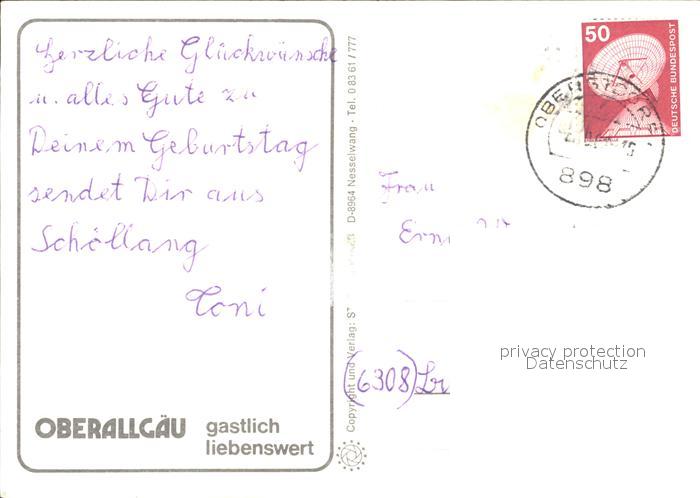 Herzliche Glückwünsche
u. alles Gute zu
Deinem Geburtstag
sendet Dir aus
Schöllang
Toni
OBERALLGÄU gastlich
liebenswert
D-8964 Nesselwang · Tel. 0 83 61 / 777
Copyright und Verlag:
50
DEUTSCHE BUNDESPOST
898
Frau
(6308)
privacy protection
Datenschutz